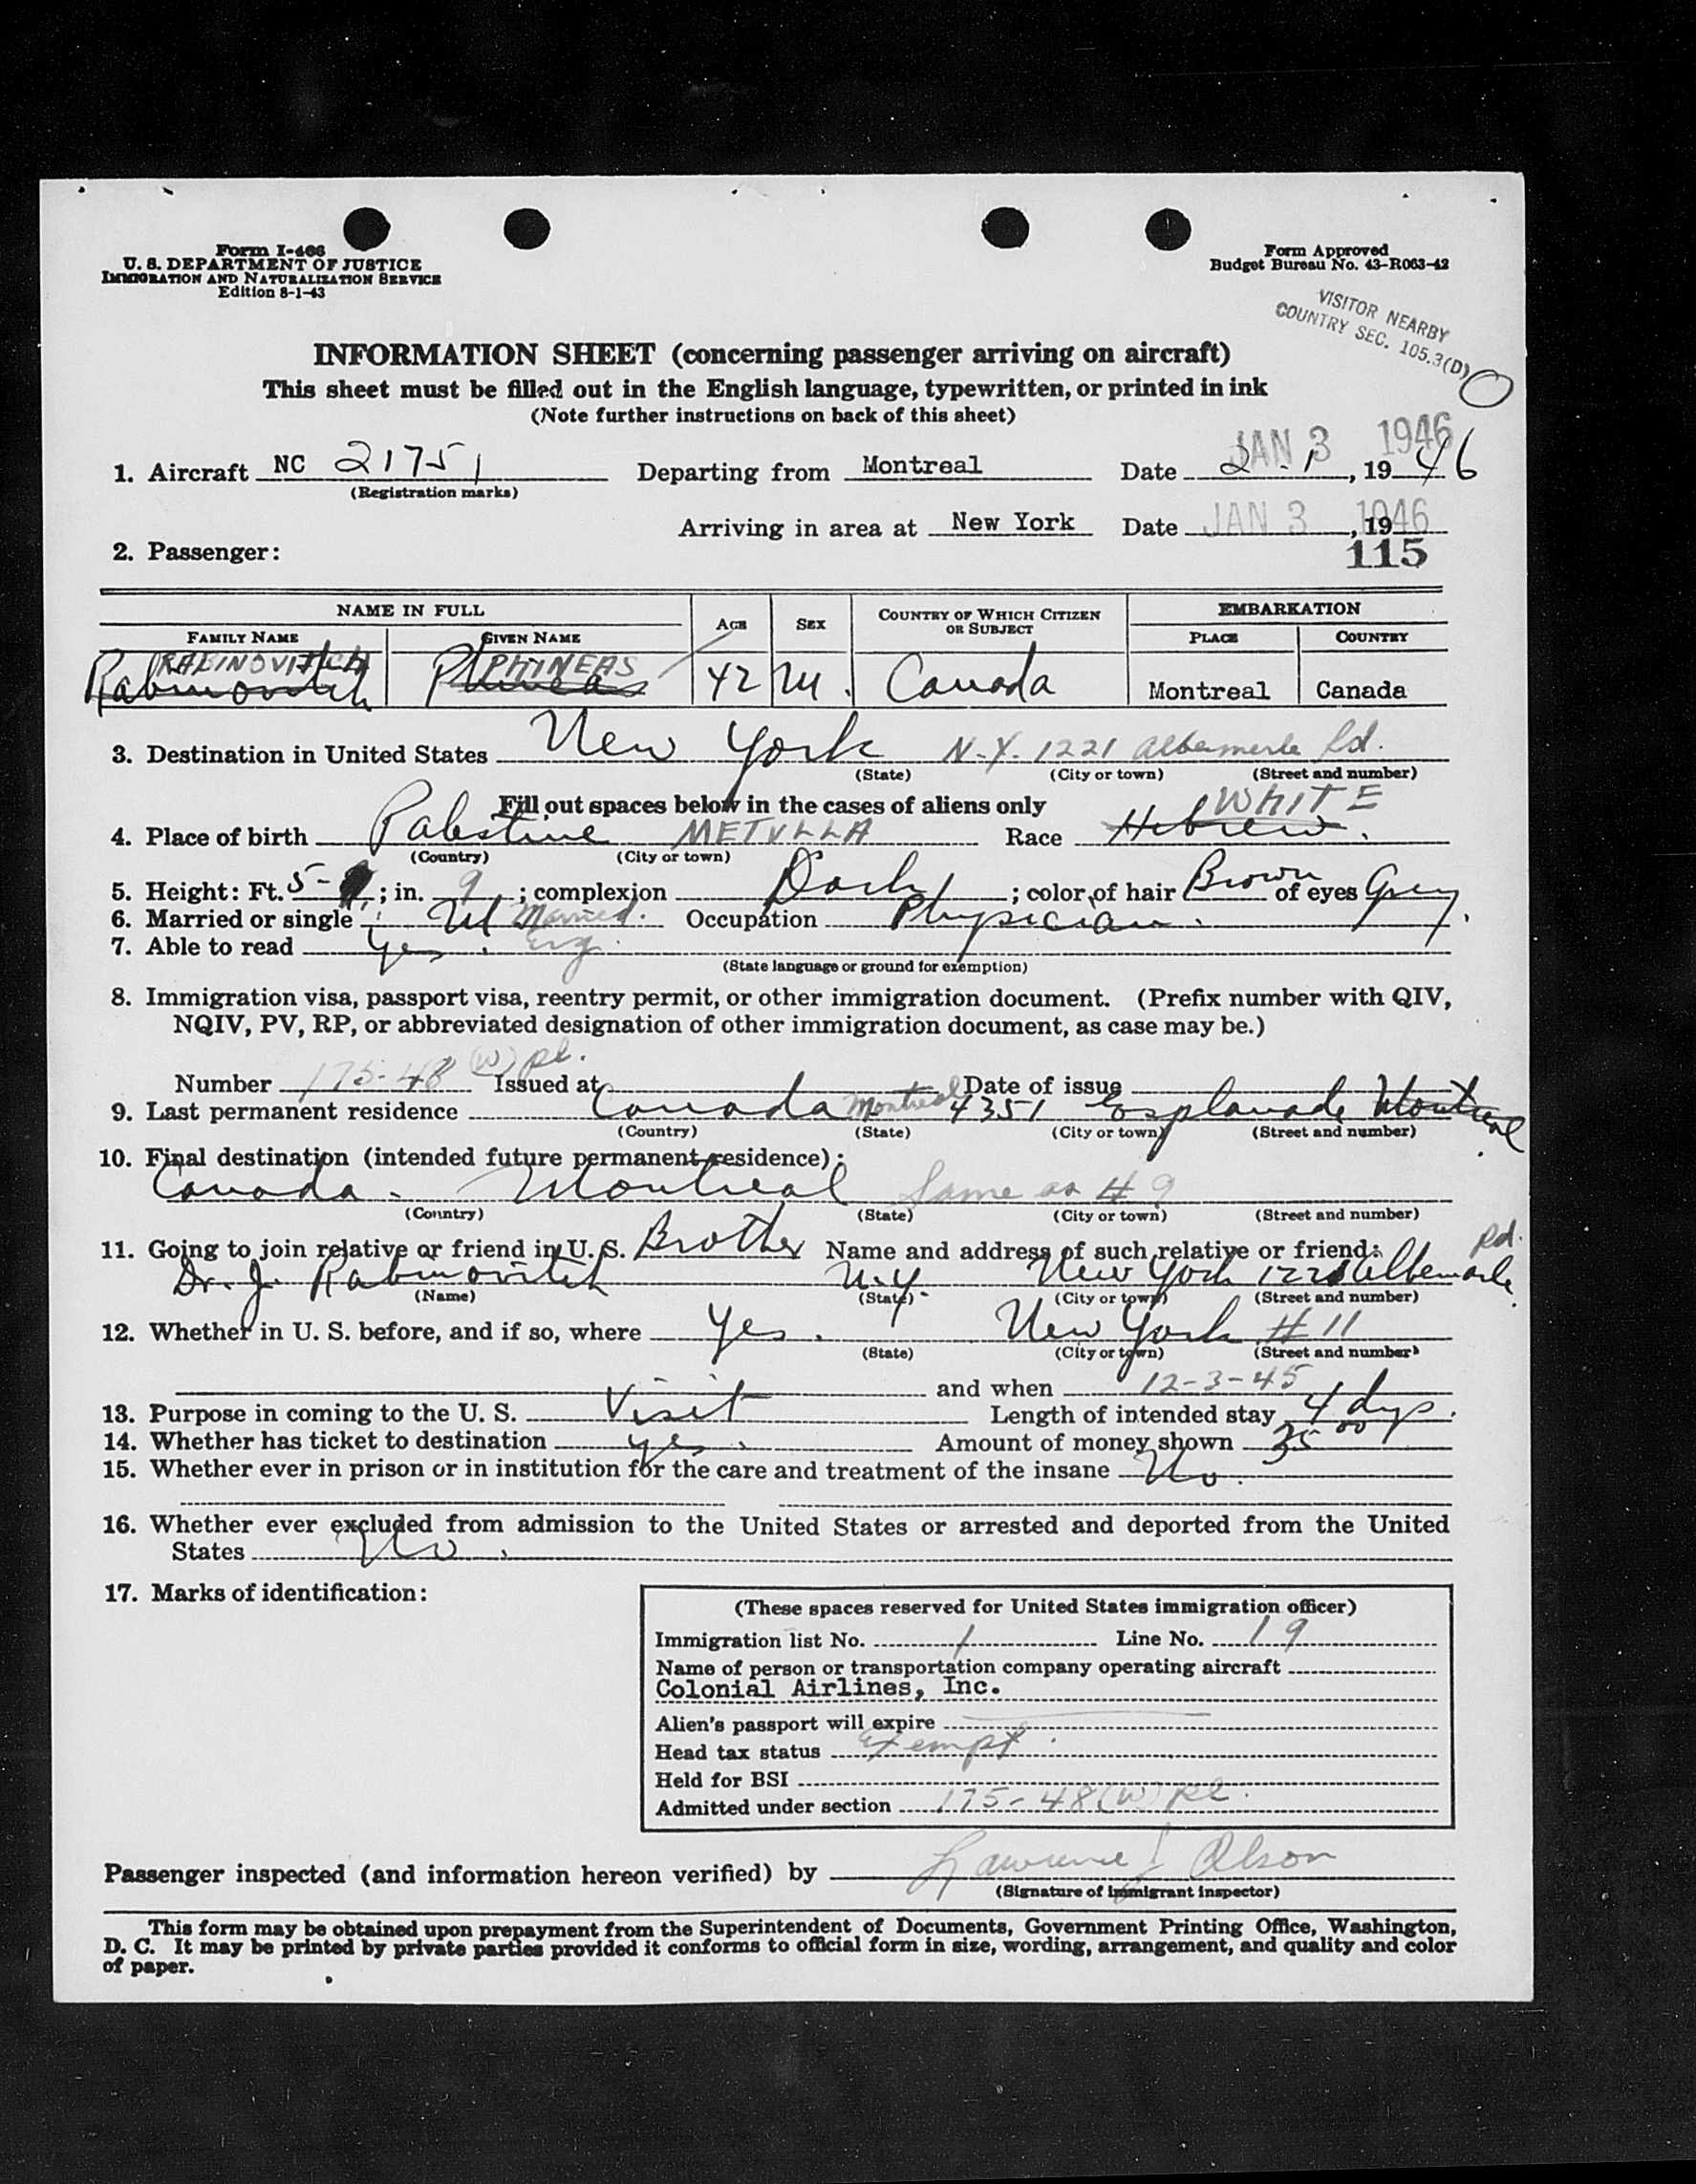 Form I-466
U. S. DEPARTMENT OF JUSTICE
IMMIGRATION AND NATURALIZATION SERVICE
Edition 8-1-43
Form Approved
Budget Bureau No. 43-R063-42
VISITOR NEARBY
COUNTRY SEC. 105.3(D)
INFORMATION SHEET (concerning passenger arriving on aircraft)
This sheet must be filled out in the English language, typewritten, or printed in ink
(Note further instructions on back of this sheet)
JAN 3 1946
1. Aircraft NC 21751 Departing from Montreal Date 2-1, 1946
(Registration marks)
Arriving in area at New York Date JAN 3 1946, 19
2. Passenger: 115
NAME IN FULL AGE SEX COUNTRY OF WHICH CITIZEN OR SUBJECT EMBARKATION
FAMILY NAME GIVEN NAME PLACE COUNTRY
RABINOVITCH PHINEAS
Rabinovitch Phineas 42 M. Canada Montreal Canada
3. Destination in United States New York N.Y. 1221 Albemerle Rd.
(State) (City or town) (Street and number)
Fill out spaces below in the cases of aliens only WHITE
4. Place of birth Palestine METULLA Race Hebrew.
(Country) (City or town)
5. Height: Ft. 5-; in. 9; complexion Dark; color of hair Brown of eyes Grey.
6. Married or single M Married. Occupation Physician.
7. Able to read yes. Eng.
(State language or ground for exemption)
8. Immigration visa, passport visa, reentry permit, or other immigration document. (Prefix number with QIV,
NQIV, PV, RP, or abbreviated designation of other immigration document, as case may be.)
Number 175-48 (W) Issued at Date of issue
9. Last permanent residence Canada Montreal 4351 Esplanade Montreal
(Country) (State) (City or town) (Street and number)
10. Final destination (intended future permanent residence):
Canada. Montreal Same as #9
(Country) (State) (City or town) (Street and number)
11. Going to join relative or friend in U. S. Brother Name and address of such relative or friend: Rd.
Dr. J. Rabinovitch N.Y. New York 1221 Albemarle
(Name) (State) (City or town) (Street and number)
12. Whether in U. S. before, and if so, where Yes. New York #11
(State) (City or town) (Street and number)
and when 12-3-45
13. Purpose in coming to the U. S. Visit Length of intended stay 4 dys.
14. Whether has ticket to destination yes. Amount of money shown 35 00
15. Whether ever in prison or in institution for the care and treatment of the insane No.
16. Whether ever excluded from admission to the United States or arrested and deported from the United
States No.
17. Marks of identification:
(These spaces reserved for United States immigration officer)
Immigration list No. 1 Line No. 19
Name of person or transportation company operating aircraft
Colonial Airlines, Inc.
Alien's passport will expire
Head tax status Exempt.
Held for BSI
Admitted under section 175-48(W)
Passenger inspected (and information hereon verified) by Lawrence J Olson
(Signature of immigrant inspector)
This form may be obtained upon prepayment from the Superintendent of Documents, Government Printing Office, Washington,
D. C. It may be printed by private parties provided it conforms to official form in size, wording, arrangement, and quality and color
of paper.